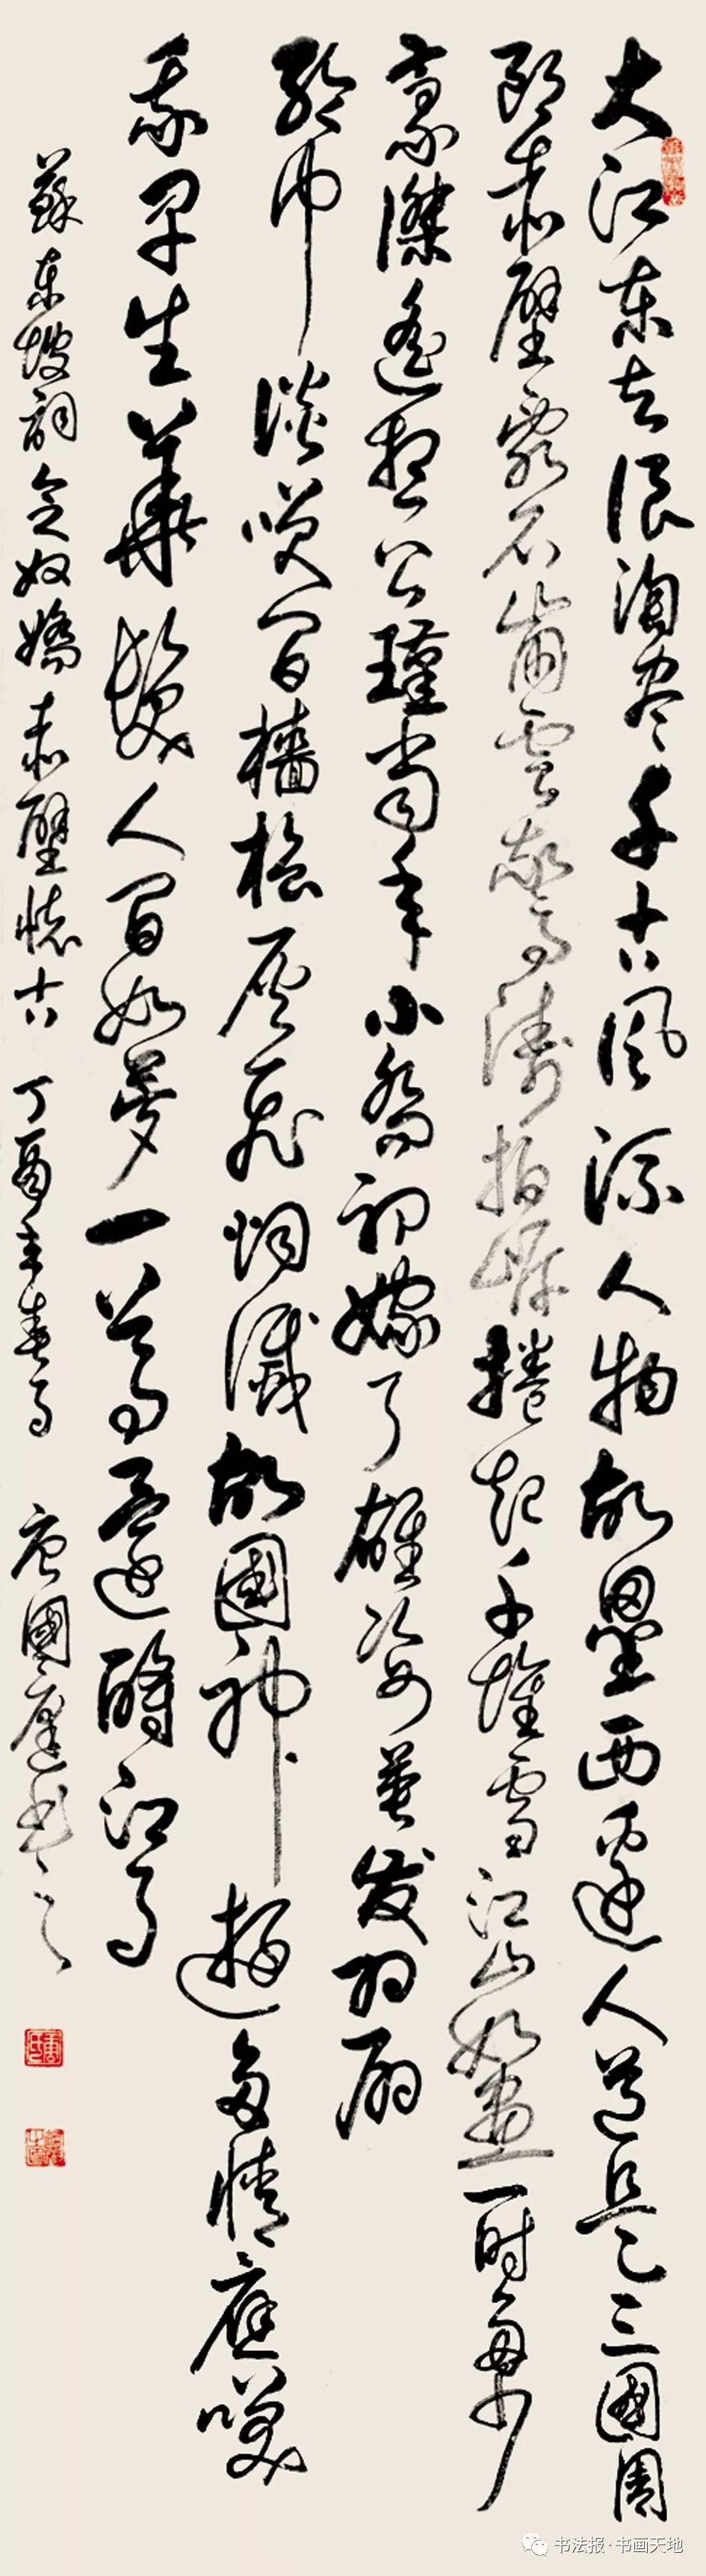 大江东去浪淘尽千古风流人物故垒西边人道是三国周
郎赤壁乱石崩云惊涛拍岸捲起千堆雪江山如画一时多少
豪杰遥想公瑾当年小乔初嫁了雄姿英发羽扇
纶巾谈笑间樯橹灰飞烟灭故国神游多情应笑
我早生华发人间如梦一尊还酹江月
苏东坡词念奴娇赤壁怀古 丁酉年春月 唐国庭书之
书法报·书画天地